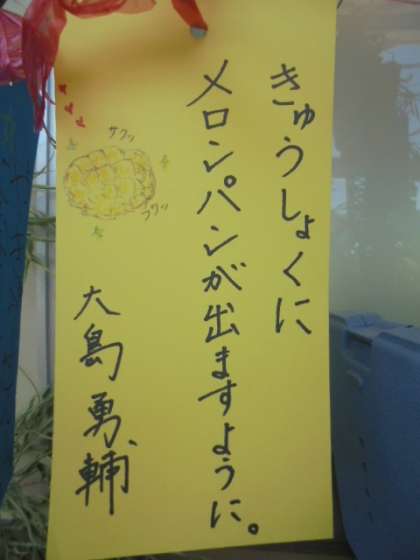 きゅうしょくに
メロンパンが出ますように。
サクッ
フワッ
大島勇輔